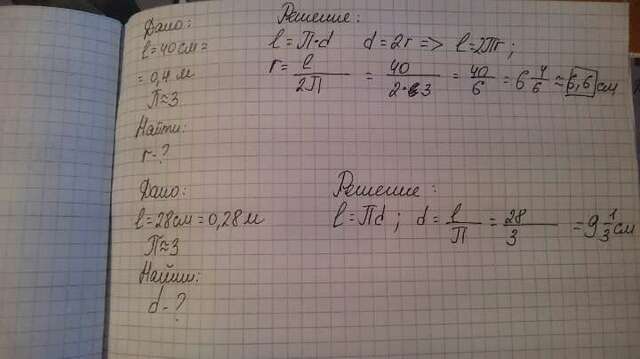 Дано:
l=40см=
=0,4м
П≈3
Найти:
r-?
Решение:
l=П·d d=2r=> l=2Пr;
r= l/2П = 40/2·3 = 40/6 = 6 4/6 ≈ 6,6 см
Дано:
l=28см=0,28м
П≈3
Найти:
d-?
Решение:
l=Пd; d= l/П = 28/3 = 9 1/3 см